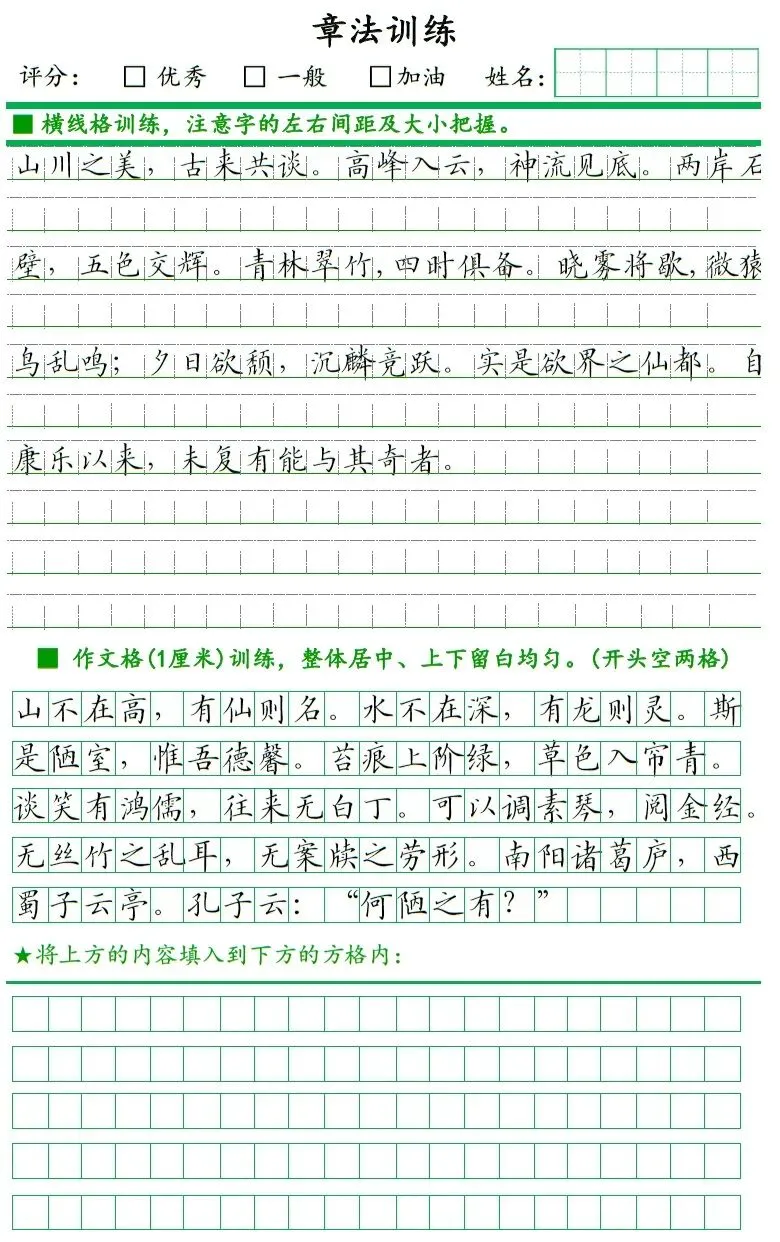 章法训练
评分： □ 优秀 □ 一般 □加油 姓名：
■ 横线格训练，注意字的左右间距及大小把握。
山川之美，古来共谈。高峰入云，神流见底。两岸石
壁，五色交辉。青林翠竹，四时俱备。晓雾将歇，微猿
鸟乱鸣；夕日欲颓，沉麟竞跃。实是欲界之仙都。自
康乐以来，未复有能与其奇者。
■ 作文格(1厘米)训练，整体居中、上下留白均匀。(开头空两格)
山不在高，有仙则名。水不在深，有龙则灵。斯
是陋室，惟吾德馨。苔痕上阶绿，草色入帘青。
谈笑有鸿儒，往来无白丁。可以调素琴，阅金经。
无丝竹之乱耳，无案牍之劳形。南阳诸葛庐，西
蜀子云亭。孔子云：“何陋之有？”
★将上方的内容填入到下方的方格内：